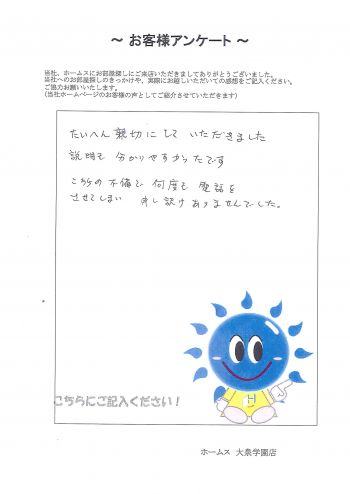 ～ お客様アンケート ～
当社、ホームスにお部屋探しにご来店いただきましてありがとうございました。
当社へのお部屋探しのきっかけや、実際にお越しいただいての感想をご記入ください。
ご協力お願いします。
(当社ホームページのお客様の声としてご紹介させていただきます)
たいへん 親切にして いただきました
説明も 分かりやすかったです
こちらの 不備で 何度も 電話を
させてしまい 申し訳ありませんでした。
H
こちらにご記入ください！
ホームス 大泉学園店